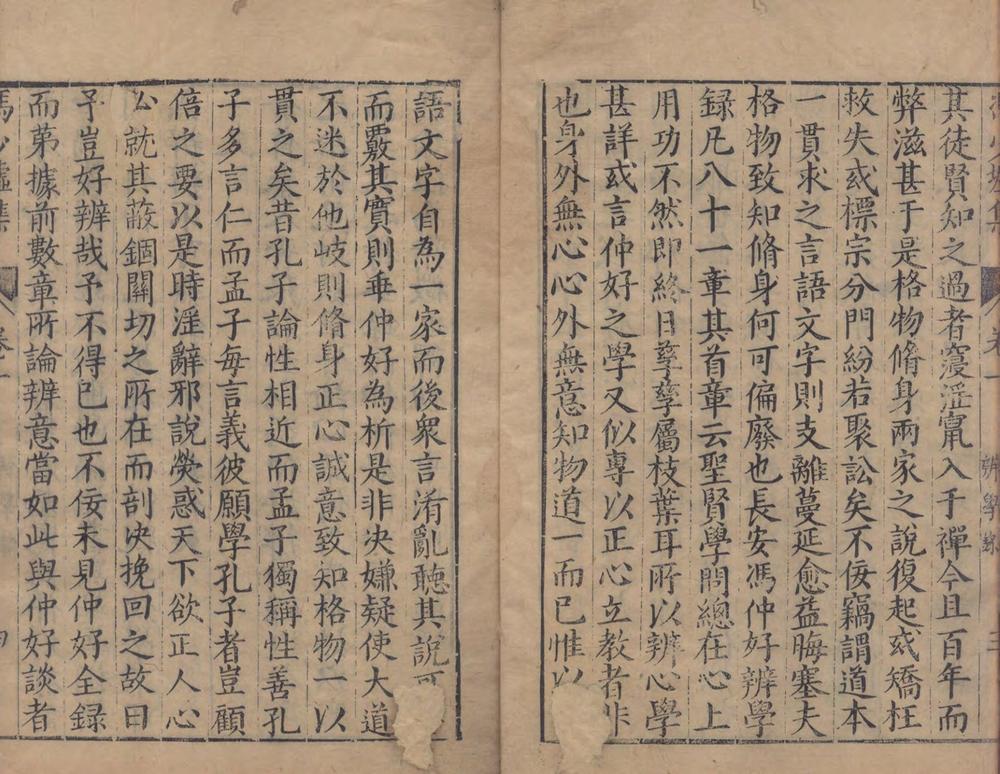 卷一
辨學錄
其徒賢知之過者寖淫竄入于禪今且百年而
弊滋甚于是格物脩身兩家之說復起或矯枉
救失或標宗分門紛若聚訟矣不佞竊謂道本
一貫求之言語文字則支離蔓延愈益晦塞夫
格物致知脩身何可偏廢也長安馮仲好辨學
録凡八十一章其首章云聖賢學問總在心上
用功不然即終日孳孳屬枝葉耳所以辨心學
甚詳或言仲好之學又似專以正心立教者非
也身外無心心外無意知物道一而已惟以
語文字自為一家而後衆言淆亂聽其說可
而覈其實則乖仲好為析是非决嫌疑使大道
不迷於他岐則脩身正心誠意致知格物一以
貫之矣昔孔子論性相近而孟子獨稱性善孔
子多言仁而孟子每言義彼願學孔子者豈顧
倍之要以是時淫辭邪說熒惑天下欲正人心
必就其蔽錮關切之所在而剖决挽回之故曰
予豈好辨哉予不得已也不佞未見仲好全録
而第據前數章所論辨意當如此與仲好談者
馮少墟集
卷一
四